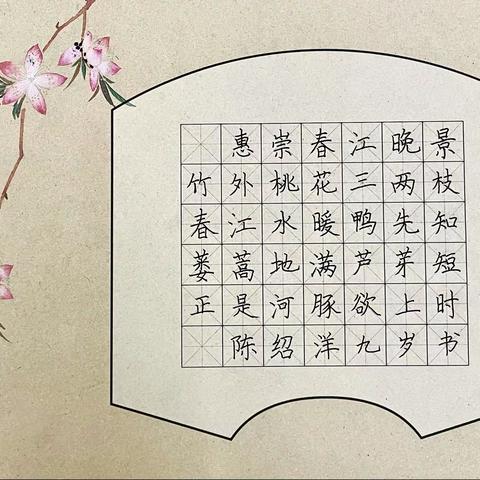 惠崇春江晚景
竹外桃花三两枝
春江水暖鸭先知
蒌蒿地满芦芽短
正是河豚欲上时
陈绍洋九岁书